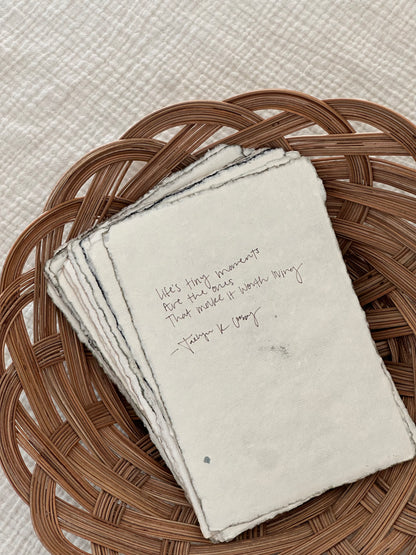 Life's tiny moments
Are the ones
That make it worth living
K